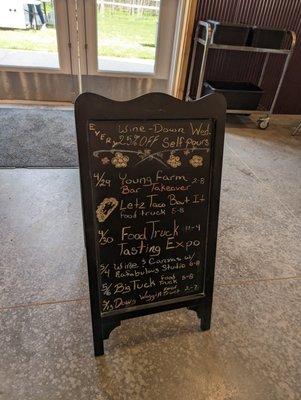 Every Wine-Down Wed.
25% off Self Pours
4/29 Young Farm
Bar Takeover 5-8
Letz Taco Bout It
food truck 5-8
4/30 Food Truck 11-4
Tasting Expo
5/4 Wine & Canvas w/
Rafabulous Studio 6-8
5/6 Big Tuck Food Truck 5-8
5/13 Dawg Truck 2-7